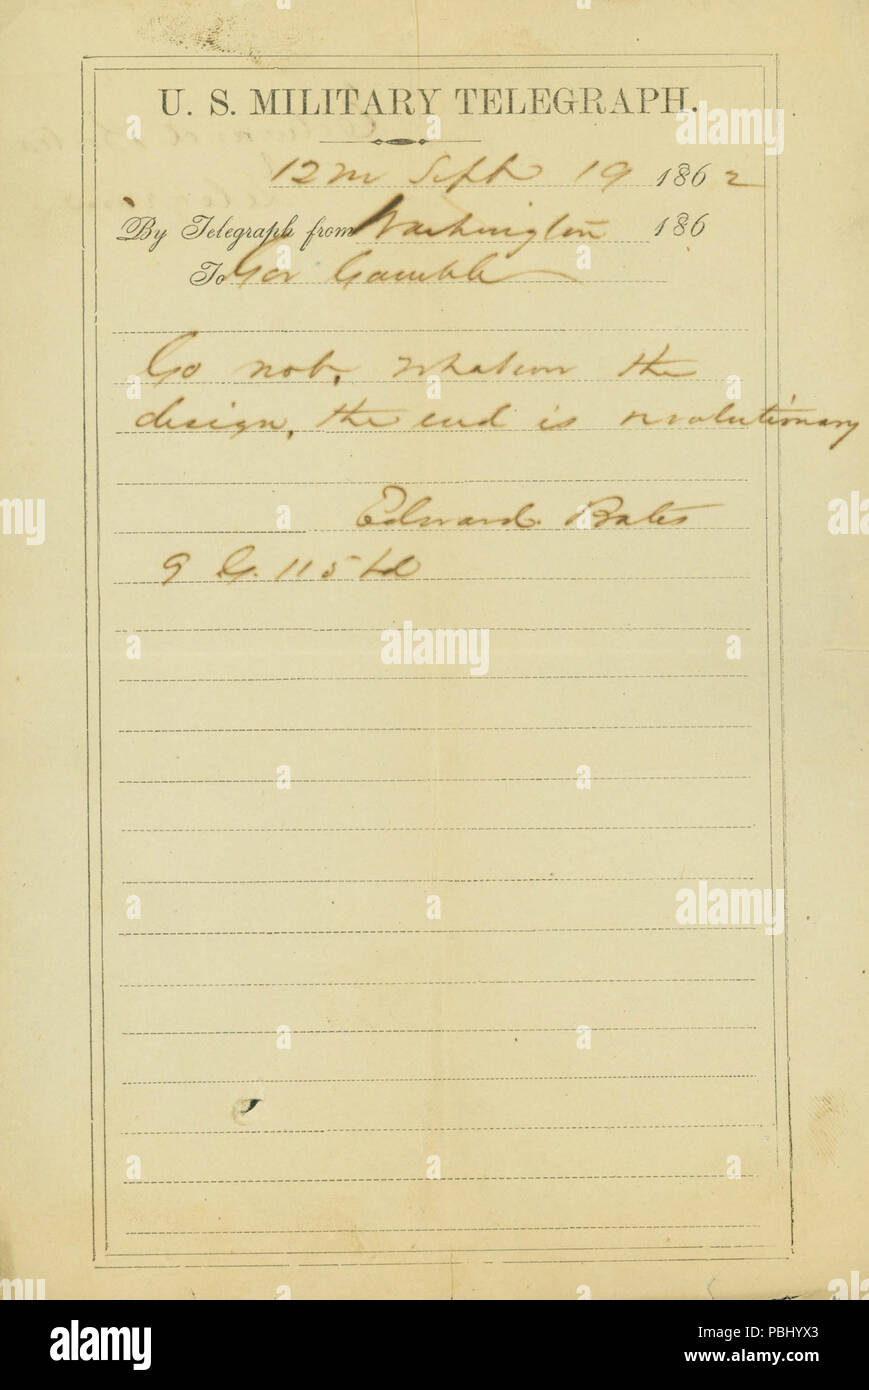 U. S. MILITARY TELEGRAPH.
12 M Sept 19 1862
By Telegraph from Washington 186
To Gov Gamble
Go not, whatever the
design, the end is revolutionary
Edward Bates
9 G. 115
alamy
Image ID: PBHYX3
www.alamy.com